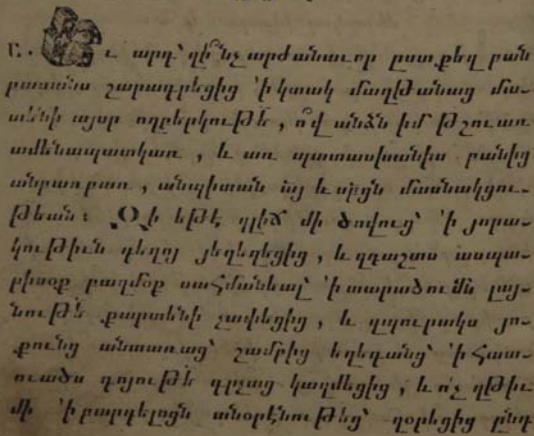 Ա. Եւ արդ՝ զի՞նչ արժանաւոր ըստ քեզ բան
բասրանս շարադրեցից ՚ի կտակ մաղթանաց մա-
տենի այսր ողբերկութե՛, ո՛վ անձն իմ թշուառ
ամենապատկառ, և առ պատասխանիս բանից
անբարբառ, անպիտան այ և սրբցն մասնակցու-
թեան։ Զի եթէ զլիճ մի ծովուց՝ ՚ի յորա-
կութիւն դեղոյ յեղեղեցից, և զդաշտս ասպա-
րիսօք բազմօք սահմանեալ՝ ՚ի տարածումն լայ-
նութե՛ քարտենի չափեցից, և զպուրակս յո-
քունց անտառաց՝ շամբից եղեգանց՝ ՚ի հատ-
ուածս գոյութե՛ գրչաց կազմեցից, և ո՛չ զթիւ
մի ՚ի բարդելոցն անօրէնութեց՝ զօրեցից ընդ